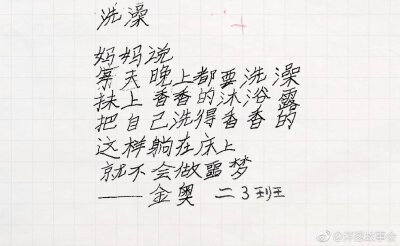 洗澡
妈妈说
每天晚上都要洗澡
抹上香香的沐浴露
把自己洗得香香的
这样躺在床上
就不会做噩梦
——金奥 二3班
@洋葱故事会